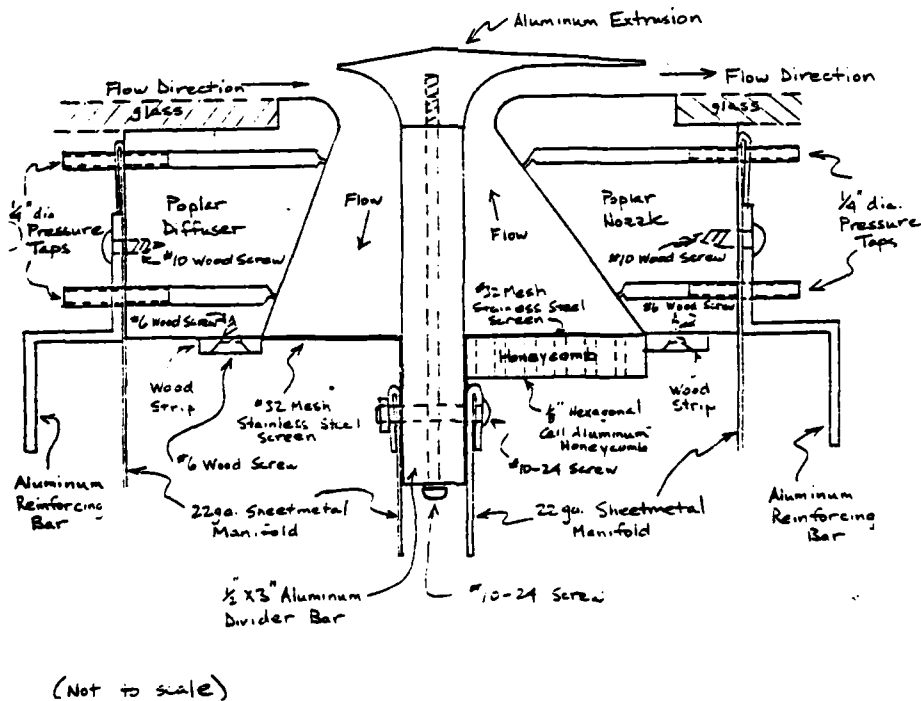 Aluminum Extrusion
Flow Direction
Flow Direction
glass
glass
1/4" dia.
Pressure
Taps
Poplar
Diffuser
Flow
Flow
Poplar
Nozzle
1/4" dia.
Pressure
Taps
#10 Wood Screw
#10 Wood Screw
#32 Mesh
Stainless Steel
Screen
#6 Wood Screw
#6 Wood Screw
Honeycomb
Wood
Strip
#32 Mesh
Stainless Steel
Screen
1/8" Hexagonal
Cell Aluminum
Honeycomb
Wood
Strip
#6 Wood Screw
#10-24 Screw
Aluminum
Reinforcing
Bar
22ga. Sheetmetal
Manifold
22ga. Sheetmetal
Manifold
Aluminum
Reinforcing
Bar
1/2" X 3" Aluminum
Divider Bar
#10-24 Screw
(Not to scale)